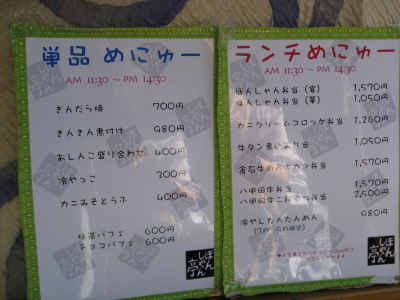 単品 めにゅー
AM 11:30 ~ PM 14:30
ぎんだら焼 700円
きんきん煮付け 980円
おしんこ盛り合わせ 400円
冷やっこ 300円
カニみそとうふ 400円
抹茶パフェ 600円
チョコパフェ 600円
ランチめにゅー
AM 11:30 ~ PM 14:30
ほんしゃん弁当 1,570円
ほんしゃん弁当 1,050円
カニクリームコロッケ弁当 1,260円
牛タン煮込み弁当 1,050円
倉石牛めんチカツ弁当 1,570円
八甲田牛弁当 1,570円
八甲田牛 弁当 2,500円
冷やしたんたんめん 980円